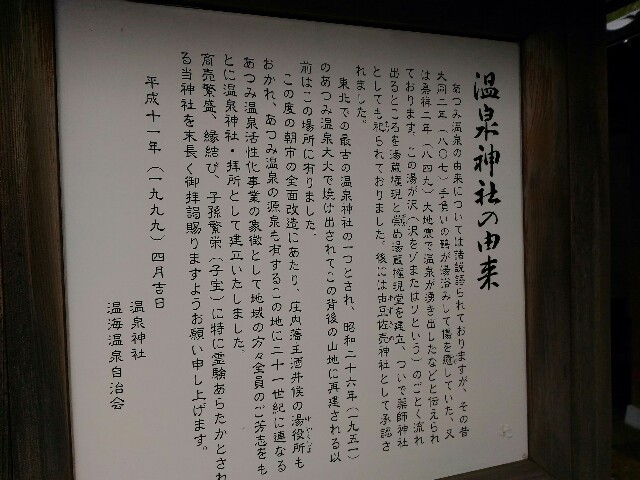 温泉神社の由来
あつみ温泉の由来については諸説語られておりますが、その昔
大同二年(八〇七)手負いの鶴が湯浴みして傷を癒していた、又
は嘉祥二年(八四九)大地震で温泉が湧き出したなどと伝えられ
ております。この湯が沢(沢をゾまたはソという)のごとく流れ
出るところを湯蔵権現と崇め湯蔵権現堂を建立、ついで薬師神社
としても祀られておりました。後には由豆佐売神社として承認さ
れました。
東北での最古の温泉神社の一つとされ、昭和二十六年(一九五一)
のあつみ温泉大火で焼け出されてこの背後の山地に再建される以
前はこの場所に有りました。
この度の朝市の全面改造にあたり、庄内藩主酒井侯の湯役所も
おかれ、あつみ温泉の源泉も有するこの地に二十一世紀に連なる
あつみ温泉活性化事業の象徴として地域の方々全員のご芳志をも
とに温泉神社・拝所として建立いたしました。
商売繁盛、縁結び、子孫繁栄(子宝)に特に霊験あらたかとされ
る当神社を末長く御拝謁賜りますようお願い申し上げます。
平成十一年(一九九九)四月吉日
温泉神社
温海温泉自治会